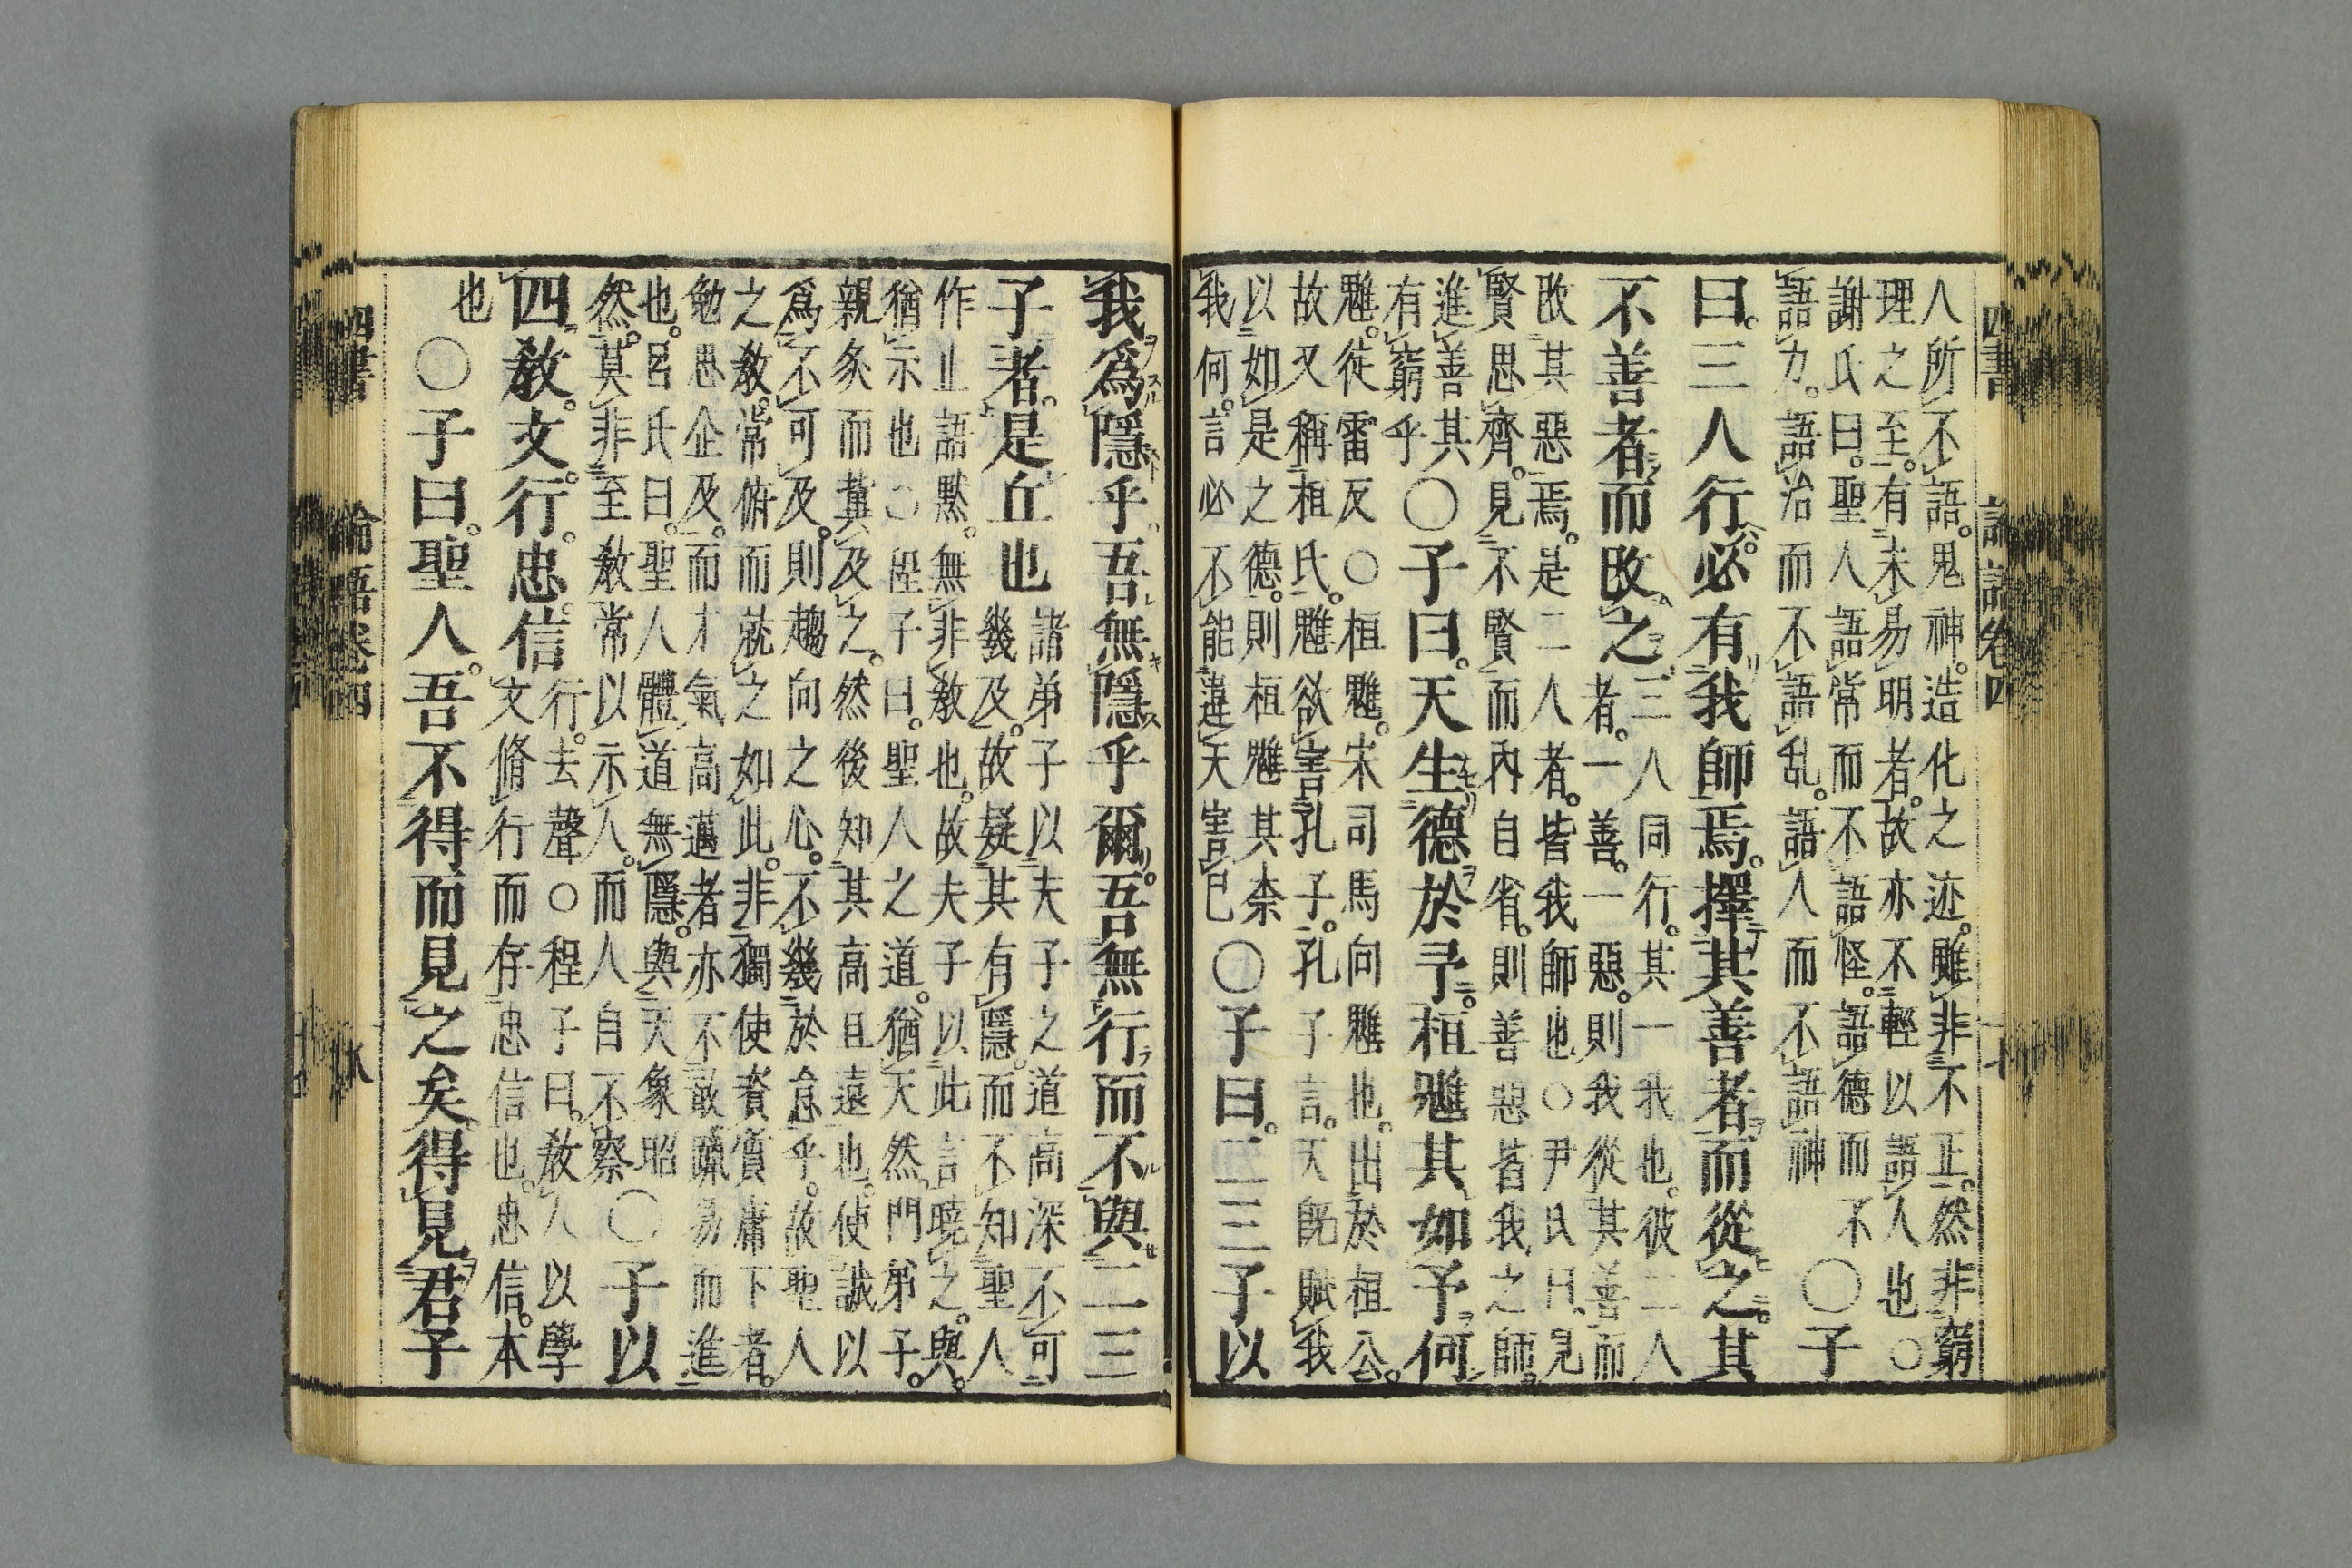 人所不語。鬼神。造化之迹。雖非不正。然非窮
理之至。有未易明者。故亦不輕以語人也○
謝氏曰。聖人語常而不語怪。語德而不
語力。語治而不語乱。語人而不語神
○子
曰。三人行。必有我師焉。擇其善者而從之。其
不善者而改之。
三人同行。其一我也。彼二人
者。一善。一惡。則我從其善而
改其惡焉。是二人者。皆我師也○尹氏曰。見
賢思齊。見不賢而內自省。則善惡皆我之師。
進善其
有窮乎
○子曰。天生德於予。桓魋其如予何
魋。徒雷反○桓魋。宋司馬向魋也。出於桓公。
故又稱桓氏。魋欲害孔子。孔子言。天既賦我
以如是之德。則桓魋其柰
我何。言必不能違天害己
○子曰。二三子以
我爲隱乎吾無隱乎爾。吾無行而不與二三
子者。是丘也
諸弟子以夫子之道高深不可
幾及。故疑其有隱。而不知聖人
作止語默。無非教也。故夫子以此言曉之。與。
猶示也○程子曰。聖人之道。猶天然。門弟子。
親炙而冀及之。然後知其高且遠也。使誠以
爲不可及。則趨向之心。不幾於怠乎。故聖人
之教。常俯而就之如此。非獨使資質庸下者。
勉思企及。而才氣高邁者亦不敢躐易而進
也。呂氏曰。聖人體道無隱。與天象昭
然。莫非至教。常以示人。而人自不察
○子以
四教。文。行。忠。信
行。去聲○程子曰。教人以學
文脩行而存忠信也。忠信。本
也
○子曰。聖人。吾不得而見之矣。得見君子
四書 論語卷四